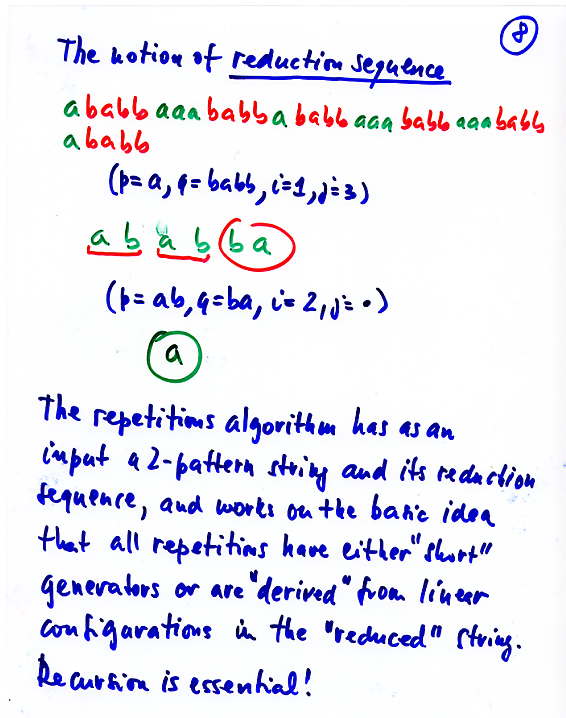 8
The notion of reduction sequence
ababbaaababbababbaaababbaaababb
ababb
(p=a, q=babb, i=1, j=3)
a b a b b a
(p=ab, q=ba, i=2, j=•)
a
The repetitions algorithm has as an
input a 2-pattern string and its reduction
sequence, and works on the basic idea
that all repetitions have either "short"
generators or are "derived" from linear
configurations in the "reduced" string.
Recursion is essential!